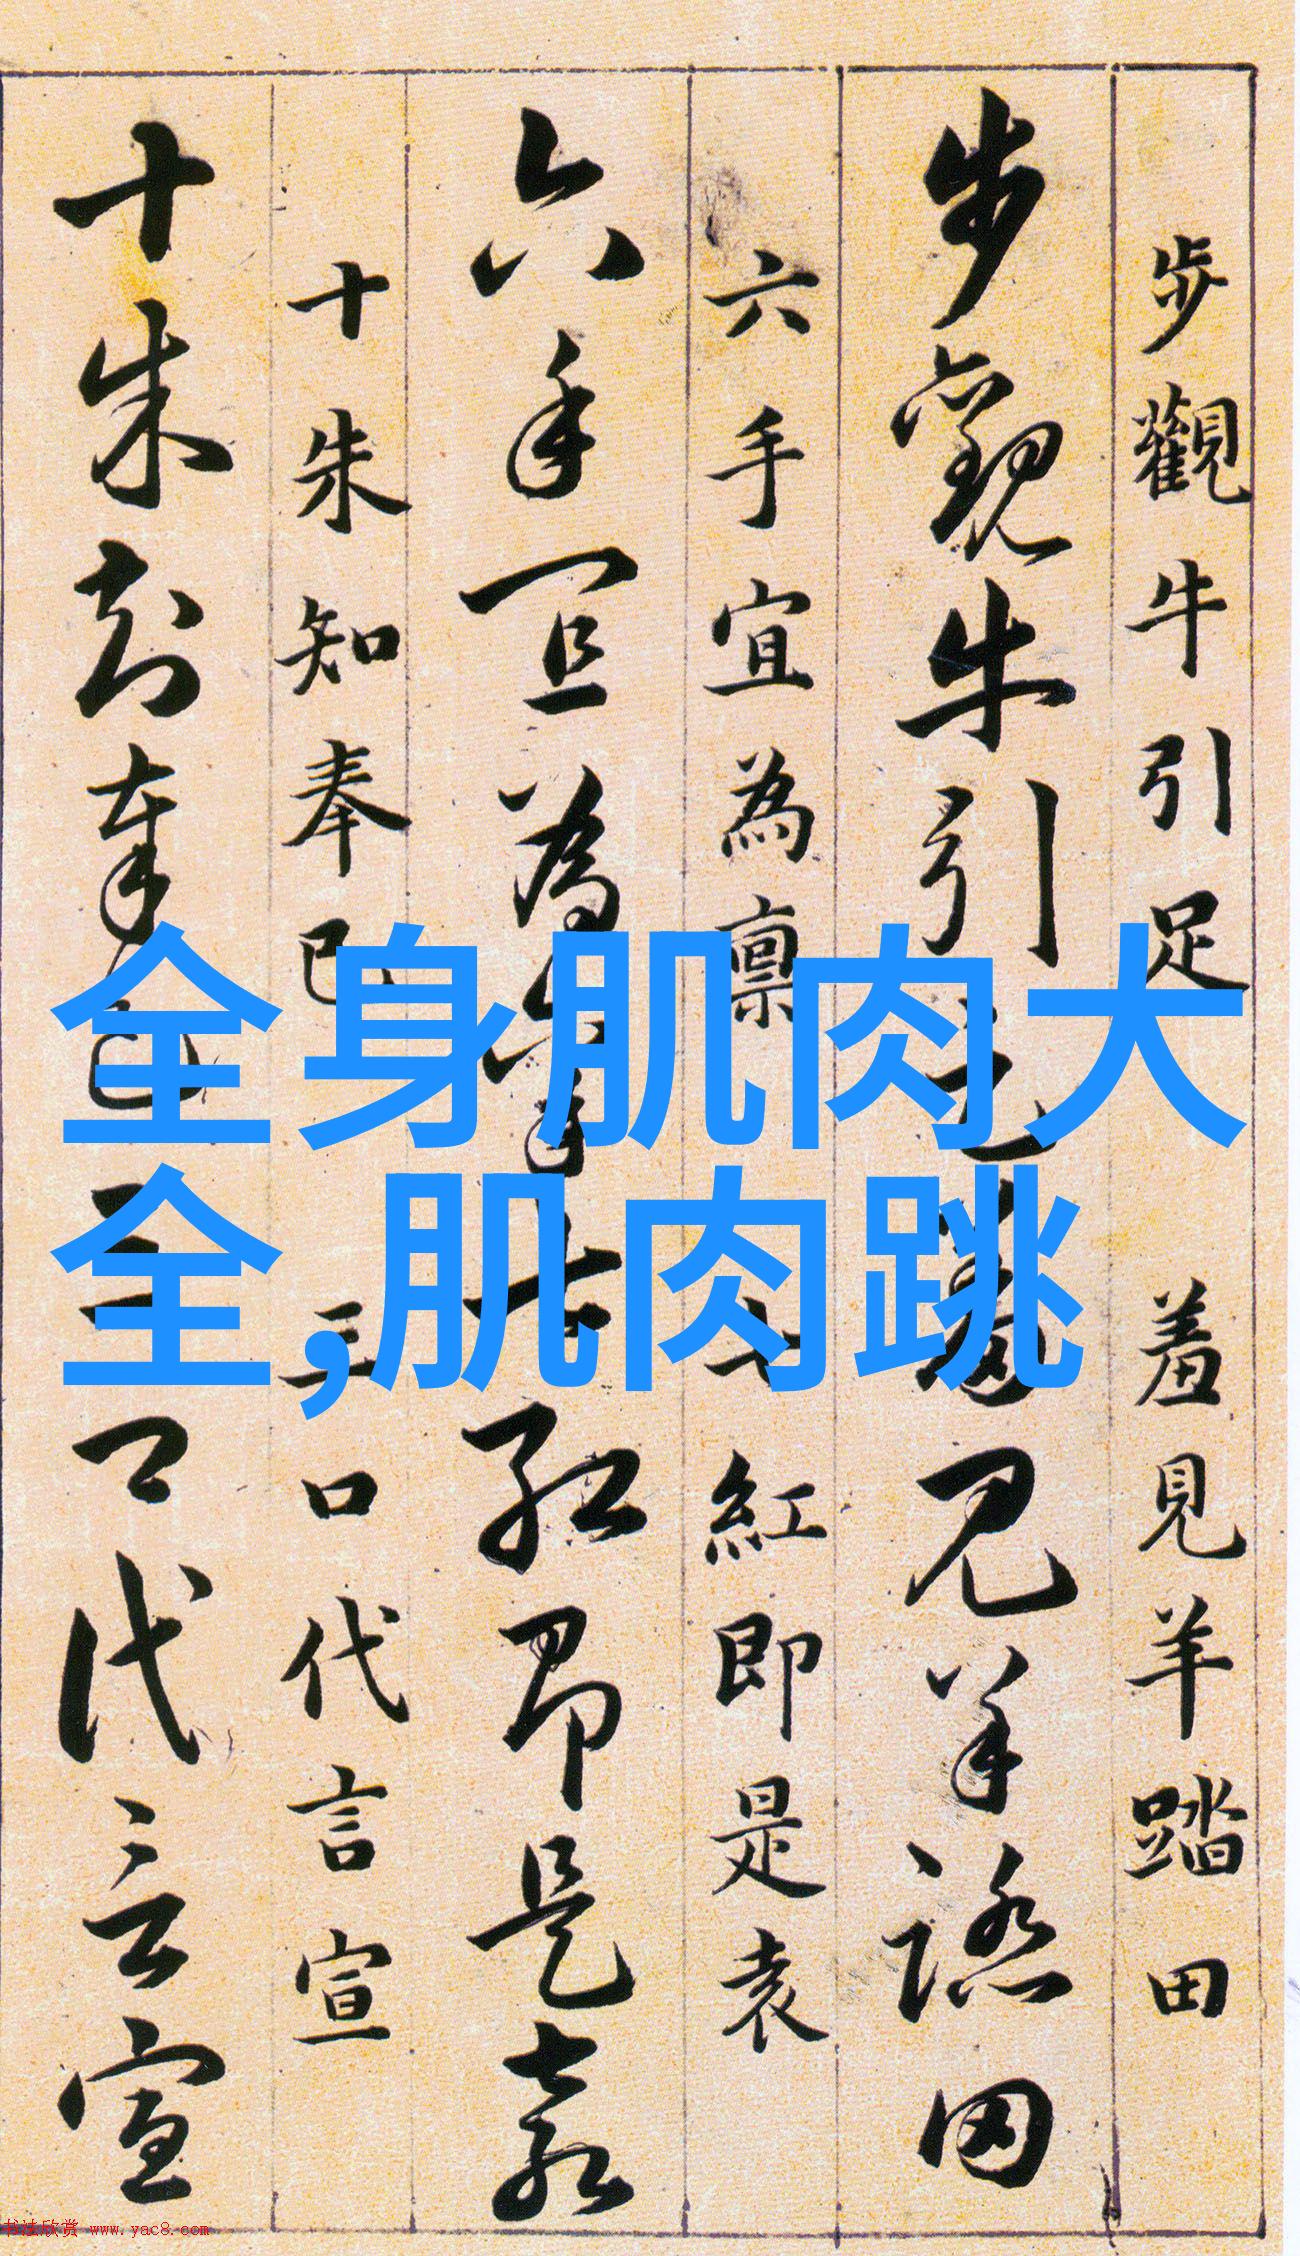 步觀牛引足羞見羊踏田
步觀牛引足羞見羊踏田
六手宜為稟七紅即是袁
六手宜為稟七紅即是袁
十朱知奉已三口代言宣
十朱知奉已三口代言宣
全身肌肉大
全,肌肉跳
书法欣赏 www.yac8.com